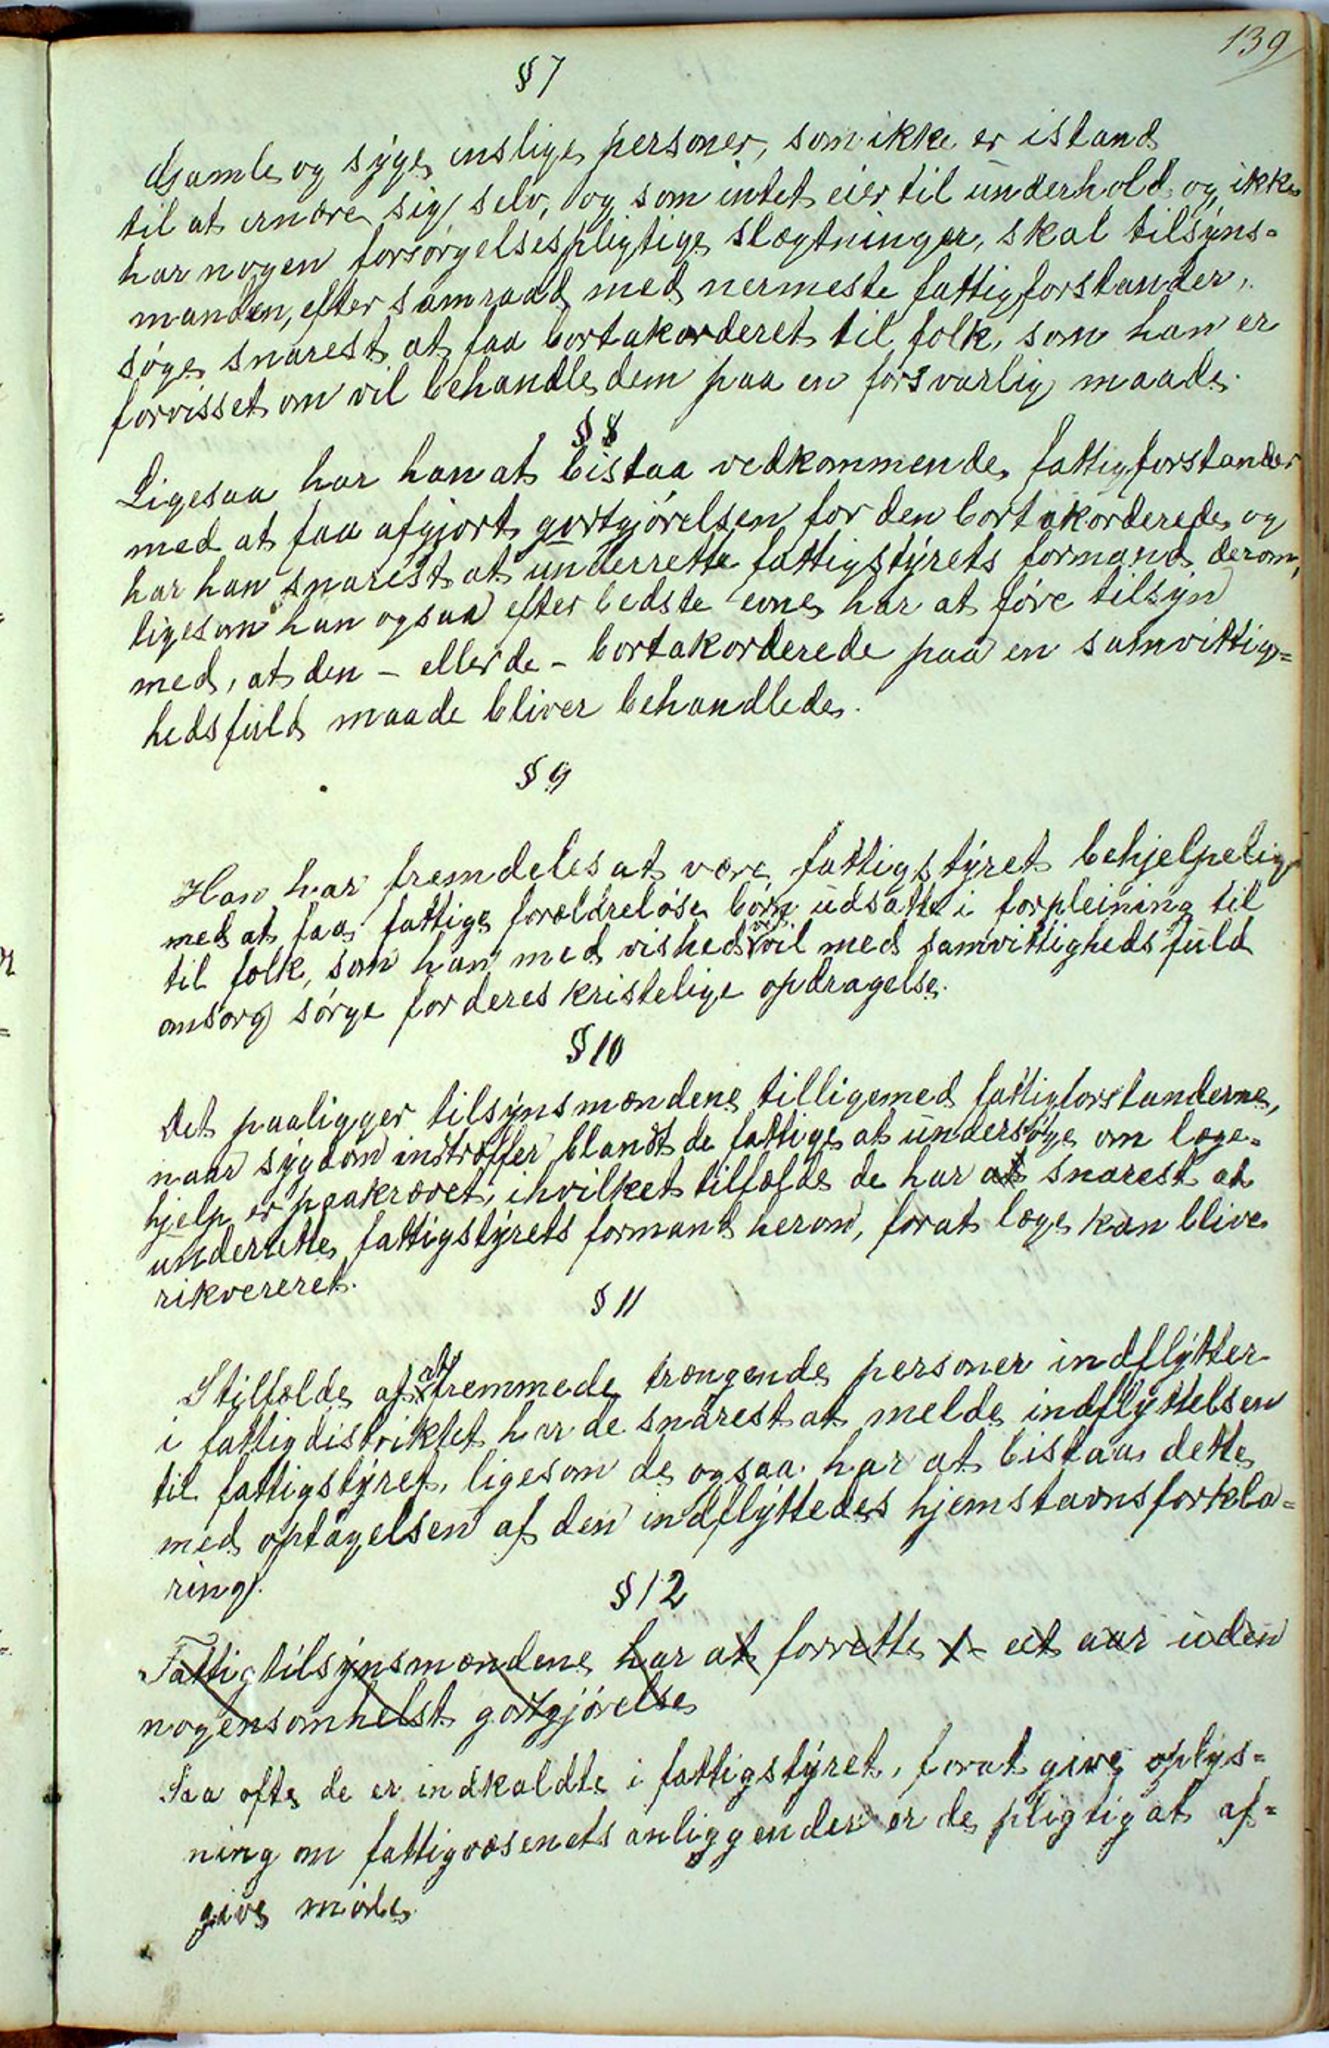 139
§ 7
Gamle og syge enslige personer, som ikke er istand
til at ernære sig selv, og som intet eier til underhold og ikke
har nogen forsørgelsespligtige slægtninger, skal tilsyns-
manden, efter samraad med nermeste fattigforstander,
søge snarest at faa bortakorderet til folk, som han er
forvisset om vil behandle dem paa en forsvarlig maade.
§ 8
Ligesaa har han at bistaa vedkommende fattigforstander
med at faa afgjort gortgjørelsen for den bortakorderede og
har han snarest at underrette fattigstyrets formand derom,
ligesom han ogsaa efter bedste evne har at føre tilsyn
med, at den - eller de - bortakorderede paa en samvittig=
hedsfuld maade bliver behandlede.
§ 9
Han har fremdeles at være fattigstyret behjelpelig
med at faa fattige forældreløse børn udsatte i forpleining til
til folk, som han med vished ved vil med samvittighedsfuld
omsorg sørge for deres kristelige opdragelse.
§ 10
Det paaligger tilsynsmændene tilligemed fattigforstanderne,
naar sygdom indtræffer blandt de fattige at undersøge om læge-
hjelp er paakrævet, i hvilket tilfælde de har at snarest at
underrette fattigstyrets formand herom, forat læge kan blive
rikvereret.
§ 11
I tilfælde af at fremmede trængende personer indflytter
i fattigdistriktet har de snarest at melde indflyttelsen
til fattigstyret, ligesom de ogsaa har at bistaa dette
med optagelsen af den indflyttedes hjemstavnsforkla=
ring.
§ 12
Fattigtilsynsmændene har at forrette 1- et aar uden
nogensomhelst gortgjørelse
Saa ofte de er indkaldte i fattigstyret, forat give oplys=
ning om fattigvæsenets anliggender er de pligtig at af=
give møde